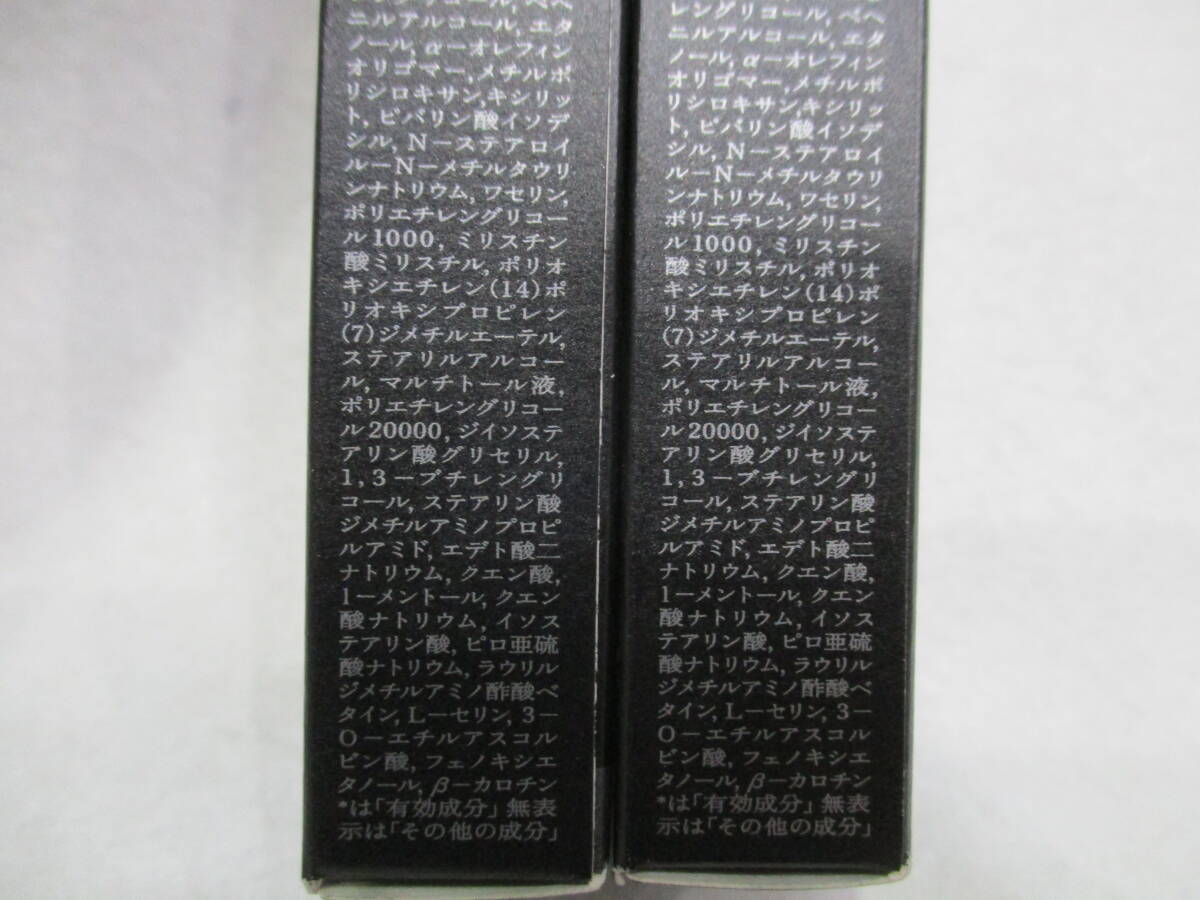 ニルアルコール, エタ
ノール, α－オレフィン
オリゴマー, メチルポ
リシロキサン, キシリッ
ト, ピバリン酸イソデ
シル, N－ステアロイ
ル－N－メチルタウリ
ンナトリウム, ワセリン,
ポリエチレングリコー
ル1000, ミリスチン
酸ミリスチル, ポリオ
キシエチレン(14)ポ
リオキシプロピレン
(7)ジメチルエーテル,
ステアリルアルコー
ル, マルチトール液,
ポリエチレングリコー
ル20000, ジイソステ
アリン酸グリセリル,
1, 3－ブチレングリ
コール, ステアリン酸
ジメチルアミノプロピ
ルアミド, エデト酸二
ナトリウム, クエン酸,
l－メントール, クエン
酸ナトリウム, イソス
テアリン酸, ピロ亜硫
酸ナトリウム, ラウリル
ジメチルアミノ酢酸ベ
タイン, L－セリン, 3－
O－エチルアスコル
ビン酸, フェノキシエ
タノール, β－カロチン
*は「有効成分」無表
示は「その他の成分」
レングリコール, ベヘ
ニルアルコール, エタ
ノール, α－オレフィン
オリゴマー, メチルポ
リシロキサン, キシリッ
ト, ピバリン酸イソデ
シル, N－ステアロイ
ル－N－メチルタウリ
ンナトリウム, ワセリン,
ポリエチレングリコー
ル1000, ミリスチン
酸ミリスチル, ポリオ
キシエチレン(14)ポ
リオキシプロピレン
(7)ジメチルエーテル,
ステアリルアルコー
ル, マルチトール液,
ポリエチレングリコー
ル20000, ジイソステ
アリン酸グリセリル,
1, 3－ブチレングリ
コール, ステアリン酸
ジメチルアミノプロピ
ルアミド, エデト酸二
ナトリウム, クエン酸,
l－メントール, クエン
酸ナトリウム, イソス
テアリン酸, ピロ亜硫
酸ナトリウム, ラウリル
ジメチルアミノ酢酸ベ
タイン, L－セリン, 3－
O－エチルアスコル
ビン酸, フェノキシエ
タノール, β－カロチン
*は「有効成分」無表
示は「その他の成分」